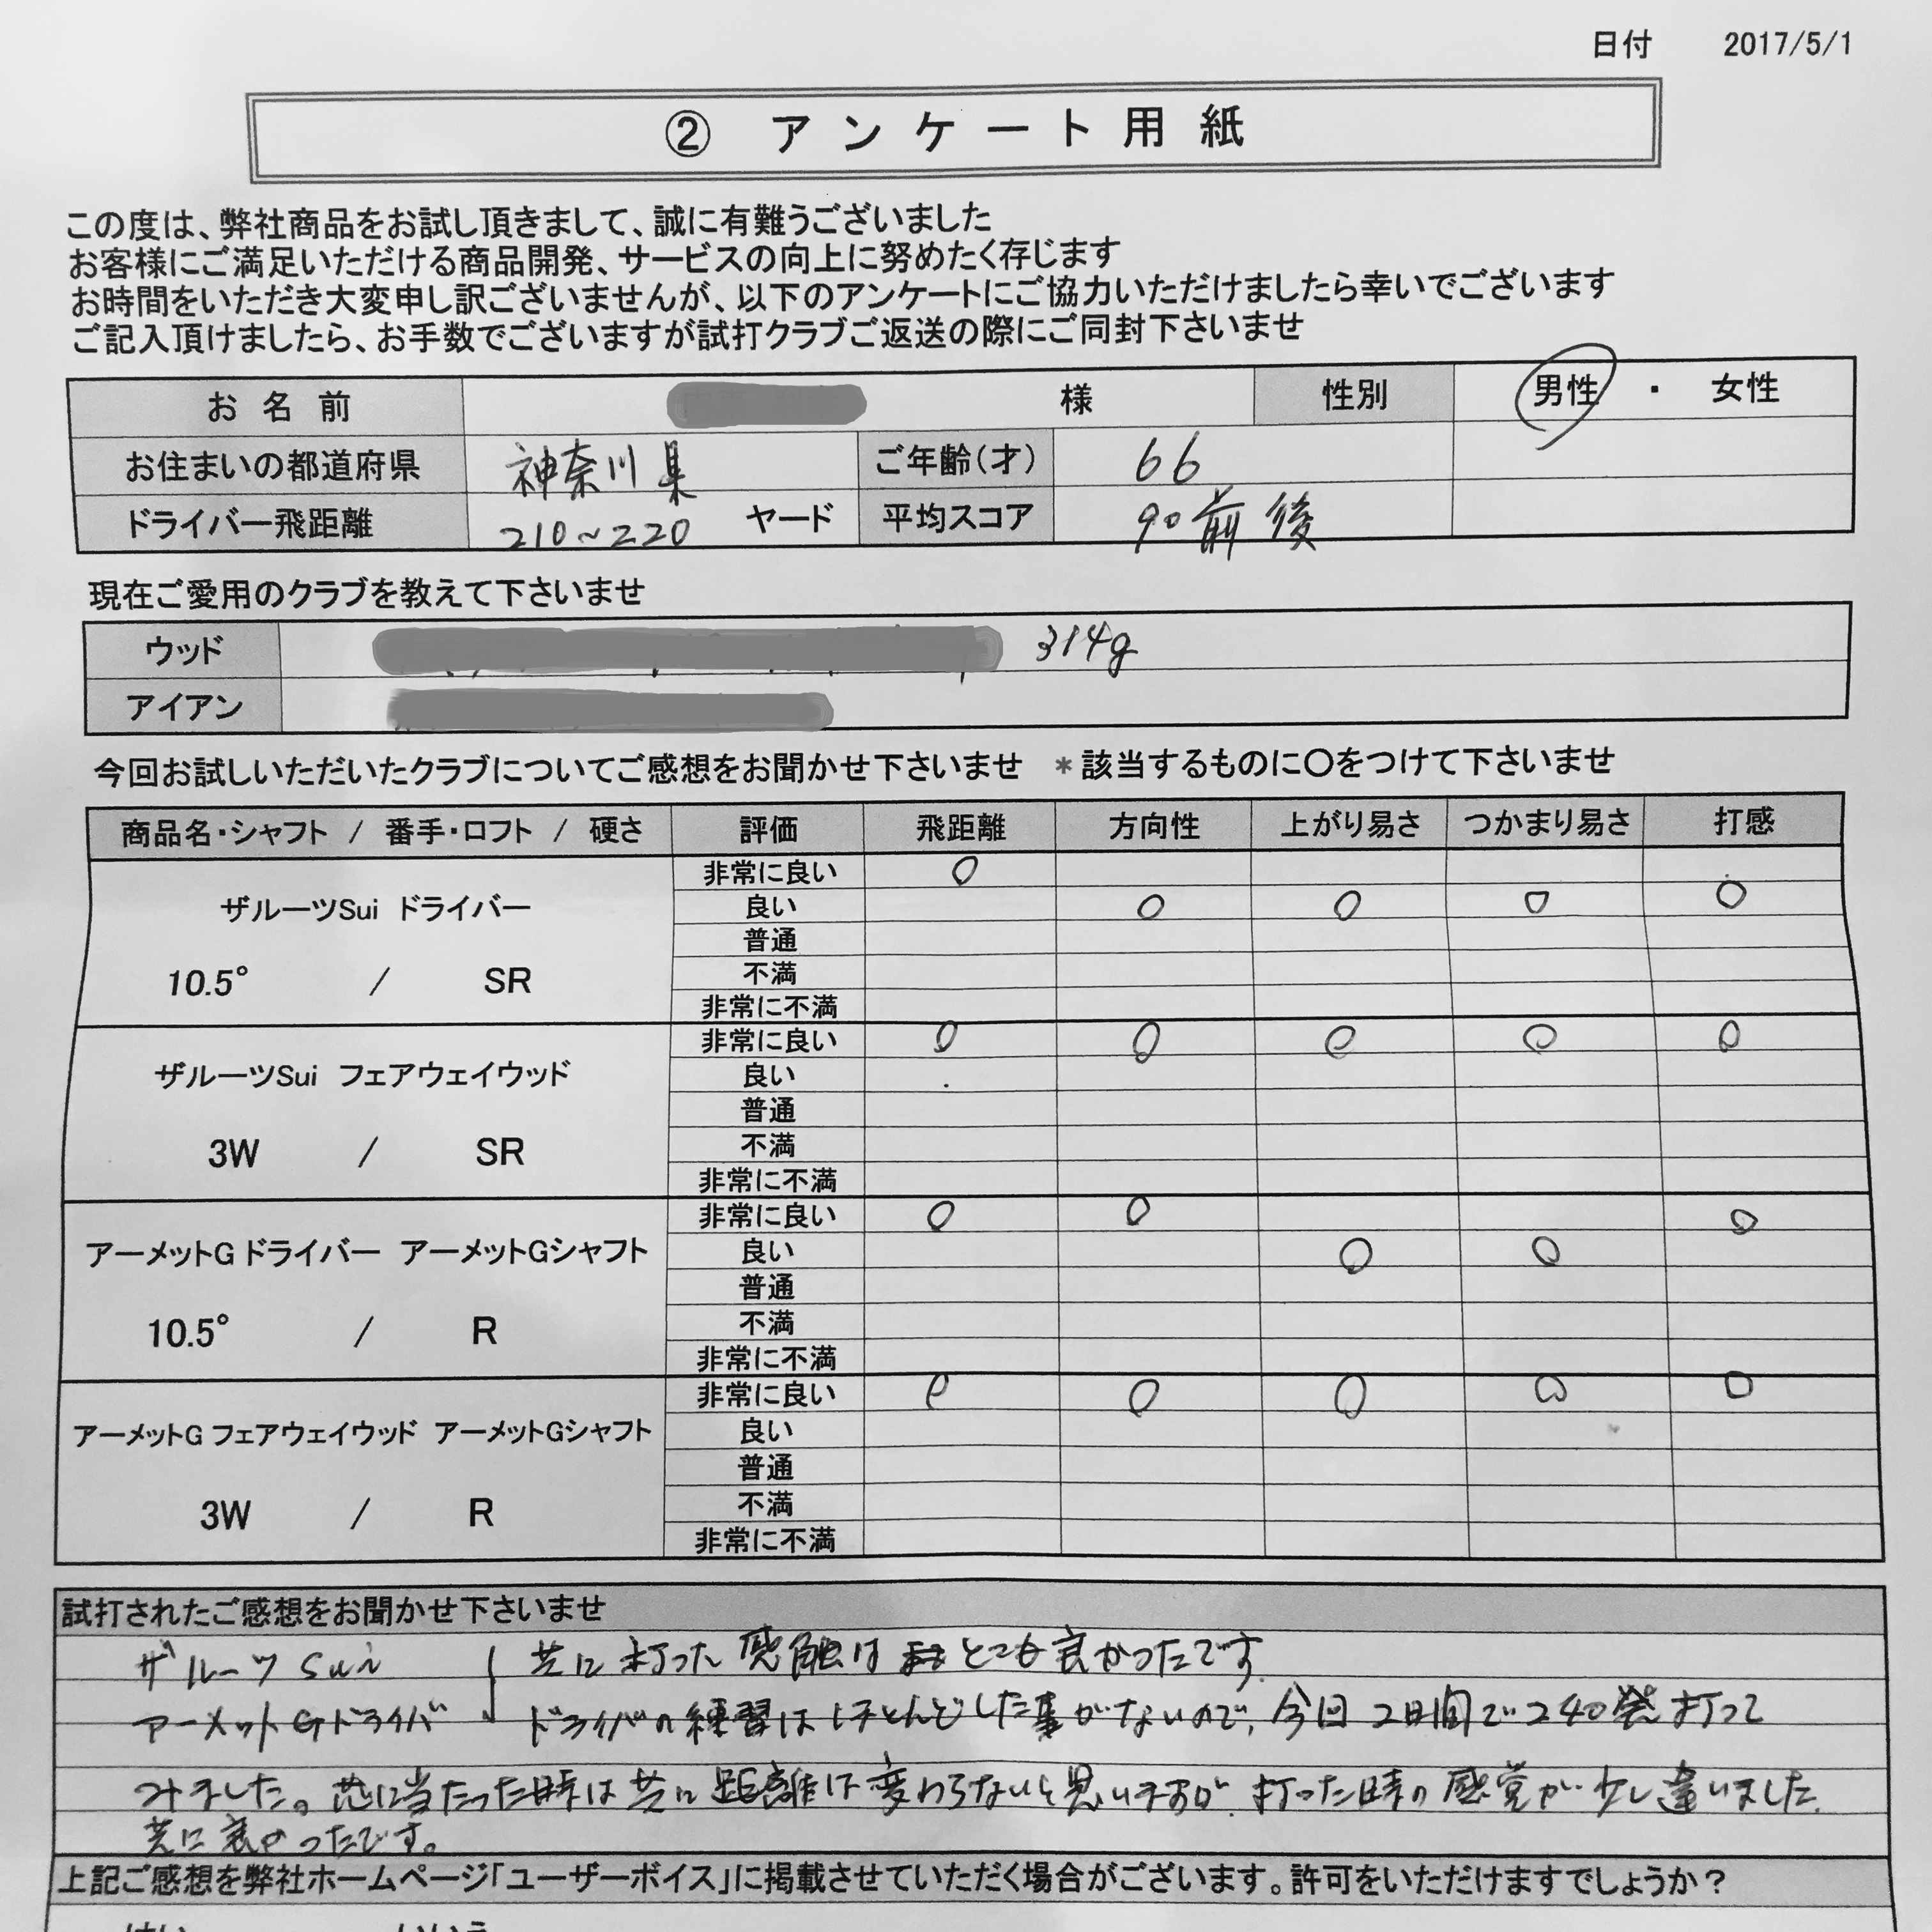 日付 2017/5/1
② アンケート用紙
この度は、弊社商品をお試し頂きまして、誠に有難うございました
お客様にご満足いただける商品開発、サービスの向上に努めたく存じます
お時間をいただき大変申し訳ございませんが、以下のアンケートにご協力いただけましたら幸いでございます
ご記入頂けましたら、お手数でございますが試打クラブご返送の際にご同封下さいませ
お名前 様 性別 男性 ・ 女性
お住まいの都道府県 神奈川県 ご年齢(才) 66
ドライバー飛距離 210~220 ヤード 平均スコア 90前後
現在ご愛用のクラブを教えて下さいませ
ウッド 314g
アイアン
今回お試しいただいたクラブについてご感想をお聞かせ下さいませ *該当するものに〇をつけて下さいませ
商品名・シャフト / 番手・ロフト / 硬さ 評価 飛距離 方向性 上がり易さ つかまり易さ 打感
ザルーツSui ドライバー
10.5° / SR
非常に良い 〇
良い 〇 〇 〇 〇
普通
不満
非常に不満
ザルーツSui フェアウェイウッド
3W / SR
非常に良い 〇 〇 〇 〇 〇
良い
普通
不満
非常に不満
アーメットG ドライバー アーメットGシャフト
10.5° / R
非常に良い 〇 〇 〇
良い 〇 〇
普通
不満
非常に不満
アーメットG フェアウェイウッド アーメットGシャフト
3W / R
非常に良い 〇 〇 〇 〇 〇
良い
普通
不満
非常に不満
試打されたご感想をお聞かせ下さいませ
ザルーツ Sui 共に打った感触は とても良かったです。
アーメットGドライバ ドライバの練習はほとんどした事がないので、今回2日間で240発打って
みました。芯に当たった時は共に距離は変わらないと思いますが、打った時の感覚が少し違いました。
共に良かったです。
上記ご感想を弊社ホームページ「ユーザーボイス」に掲載させていただく場合がございます。許可をいただけますでしょうか？
はい いいえ